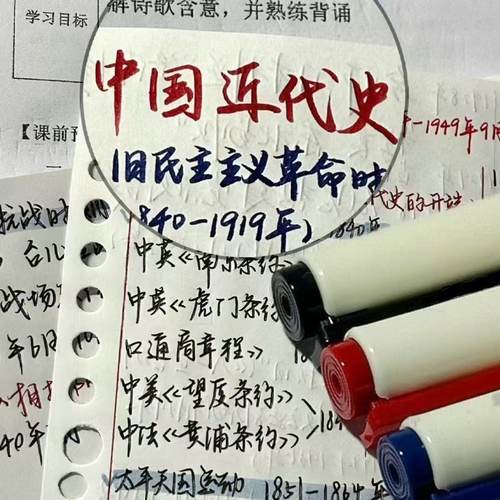 学习目标
解诗歌含意，并熟练背诵
【课前预
中国近代史
-1949年9月
旧民主主义革命时
1840-1919年)
代史的开端
1840年
抗战时
中英《南京条约》
台儿
中英《虎门条约
战场
口通商章程》
年6月
中美《望厦条约》
相
中法《黄埔条约》
40年
太平天国运动 1851-1864年